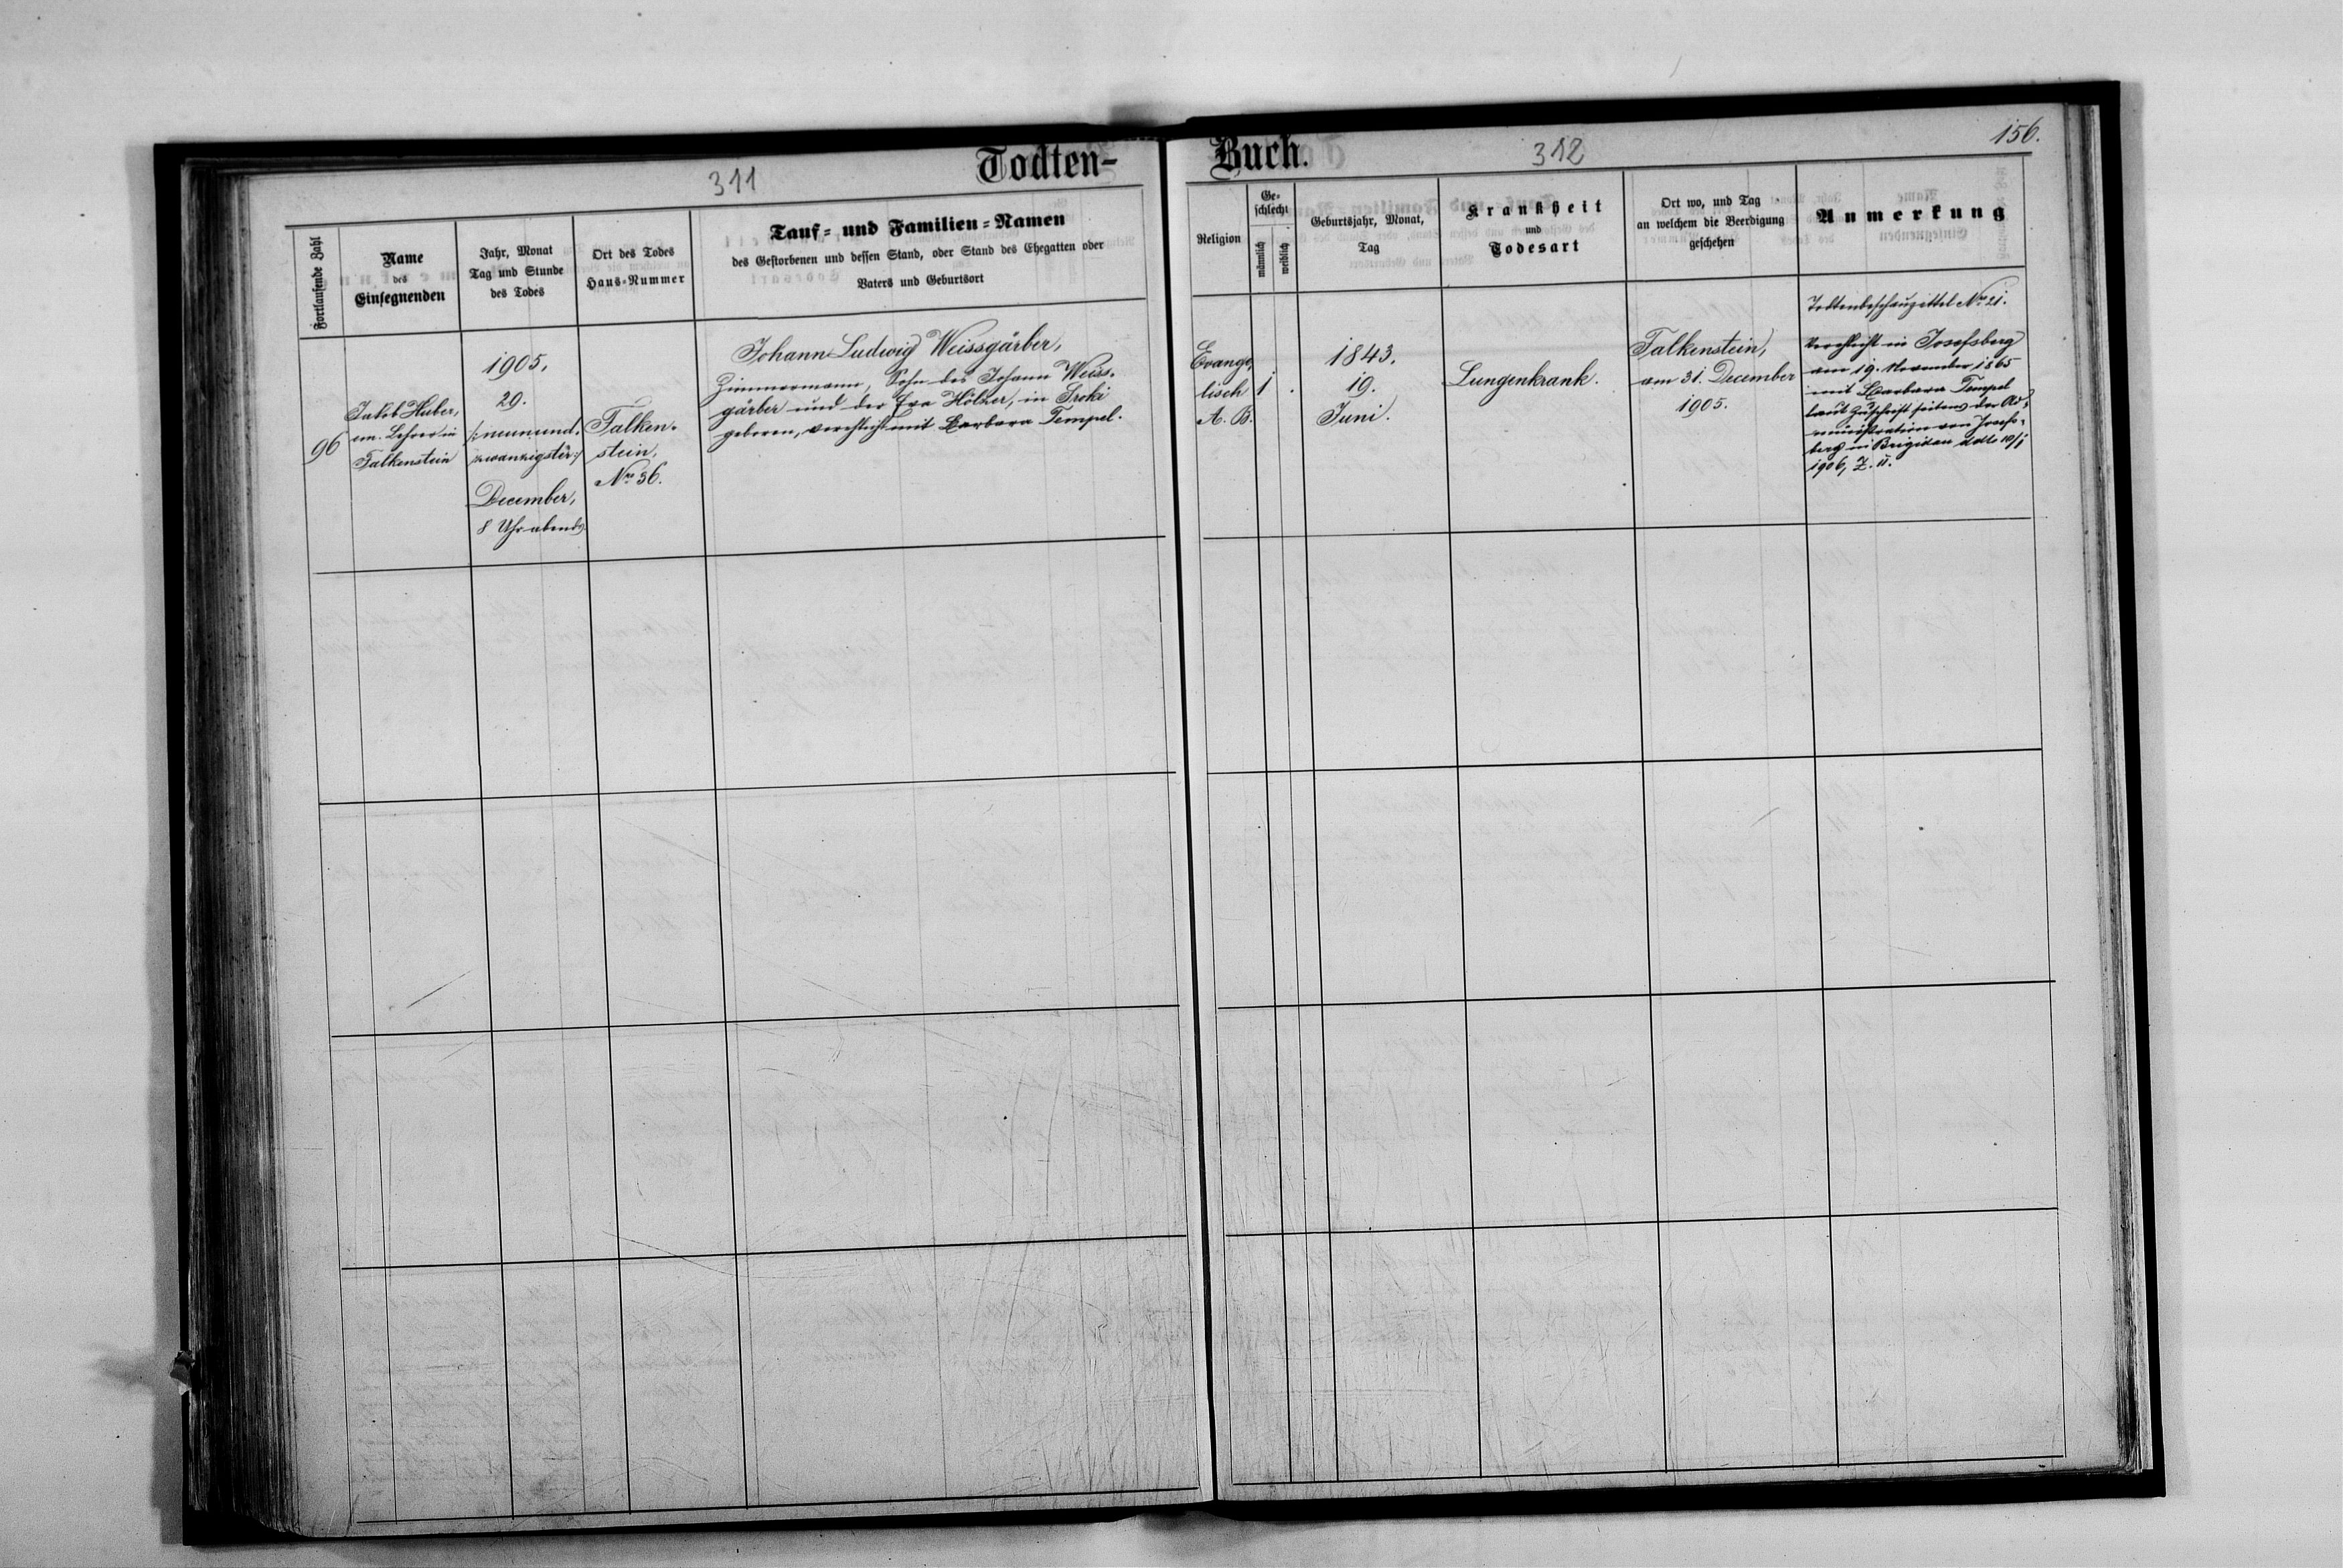 311
Todten-
Buch.
312
156.
Fortlaufende Zahl
Name
des
Einsegnenden
Jahr, Monat
Tag und Stunde
des Todes
Ort des Todes
Haus-Nummer
Tauf- und Familien-Namen
des Gestorbenen und dessen Stand, oder Stand des Ehegatten oder
Vaters und Geburtsort
Religion
Ge-
schlecht
männlich
weiblich
Geburtsjahr, Monat,
Tag
Krankheit
und
Todesart
Ort wo, und Tag
an welchem die Beerdigung
geschehen
Anmerkung
96
Jakob Huber,
em. Lehrer in
Falkenstein
1905,
29.
/:neunund-
zwanzigster:/
December,
8 Uhr abends.
Falken-
stein,
Nr. 36.
Johann Ludwig Weissgärber,
Zimmermann, Sohn des Johann Weiss-
gärber und der Eva Hölzer, in Sroki
geboren, verehlicht mit Barbara Tempel.
Evange-
lisch
A. B.
1
.
1843.
19.
Juni.
Lungenkrank.
Falkenstein,
am 31. December
1905.
Todtenbeschauzettel Nr. 21.
Verehlicht in Josefsberg
am 19. November 1865
mit Barbara Tempel
laut Zuschrift seitens der Ad-
ministration von Josefs-
berg in Brigidau ddto 10/1
1906, Z. 11.